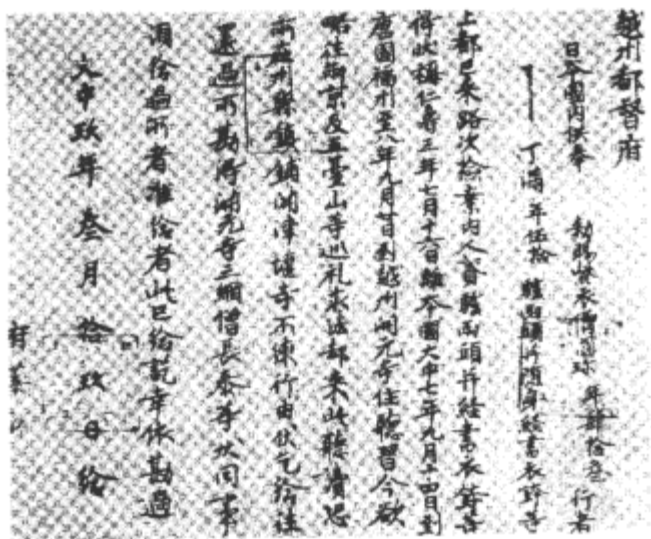 越州都督府
日本國内供奉 勅賜紫衣僧圓珍 年肆拾叁 行者
丁滿 年伍拾 驢兩頭并隨身經書衣鉢等
上都已來路次檢案内人貳驢兩頭并經書衣鉢等
得狀稱仁壽三年七月十六日離本國大中七年九月十四日到
唐國福州至八年九月廿日到越州開元寺住聽習今欲
略往兩京及五臺山等巡礼求法却來此聽讀恐
所在州縣鎮鋪關津堰寺不練行由伏乞給往
還過所勘得開元寺三綱僧長泰等狀同事
須給過所者准給者此已給訖幸依勘過
大中玖年叁月拾玖日給
府葉